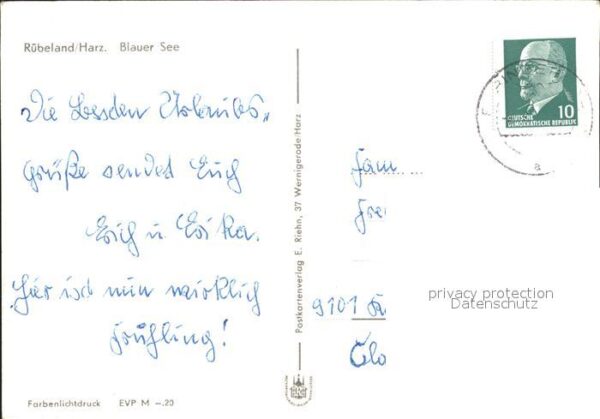 Rübeland/Harz. Blauer See
Die besten Urlaubs-
grüße sendet Euch
Erich u. Erika.
Hier ist nun wirklich
Frühling!
Farbenlichtdruck EVP M –.20
Postkartenverlag E. Riehn, 37 Wernigerode-Harz
10
DEUTSCHE
DEMOKRATISCHE REPUBLIK
a
Fam
9101
privacy protection
Datenschutz